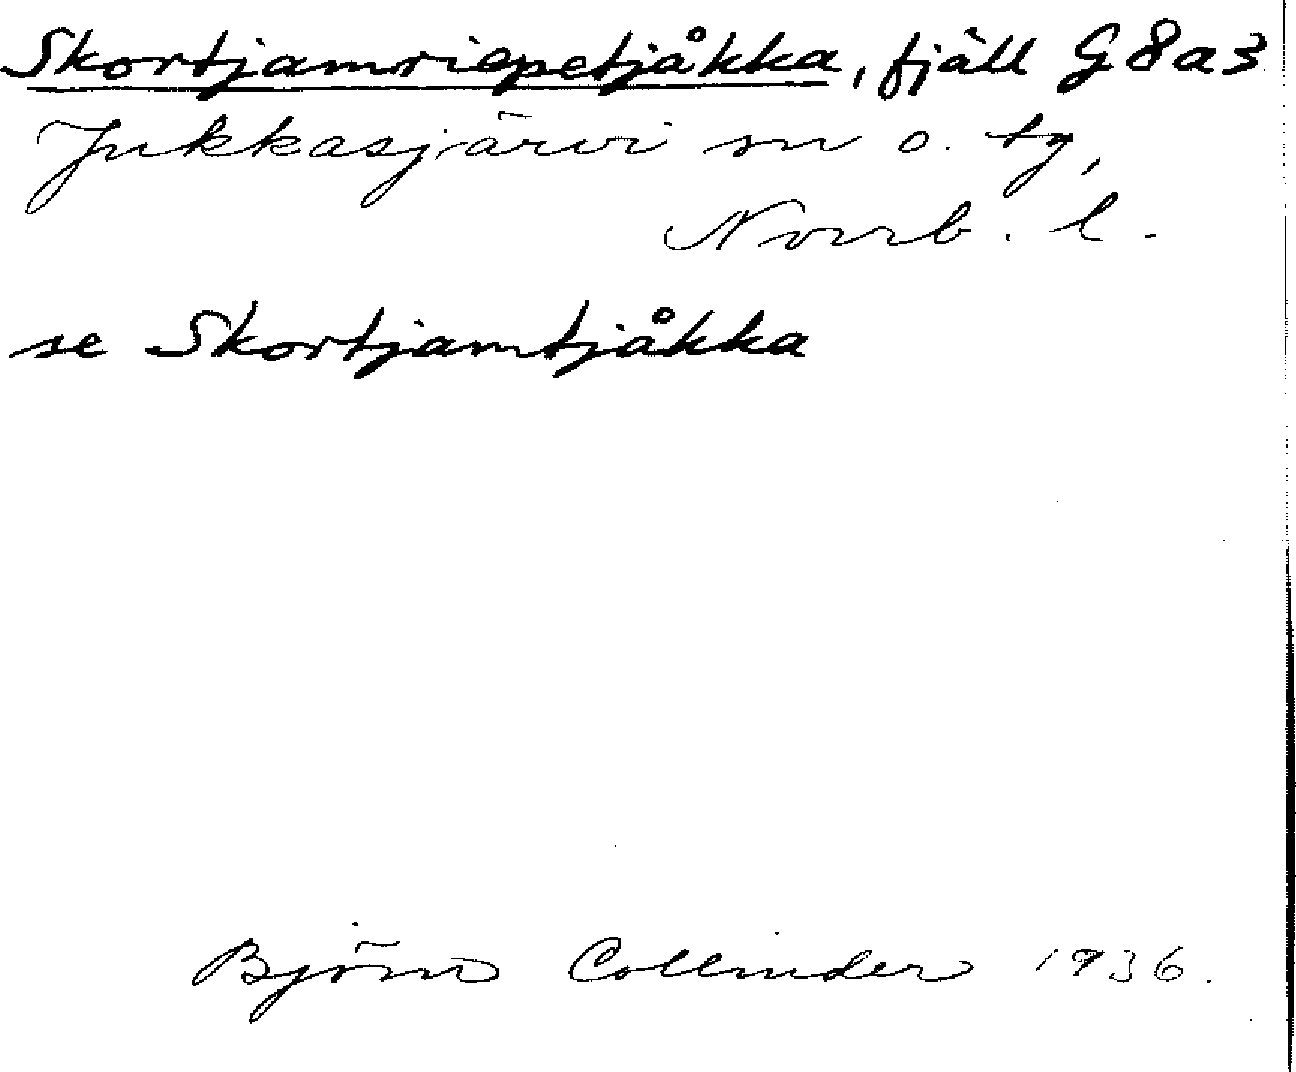 Skortjamriepetjåkka, fjäll G8a3
Jukkasjärvi sn o. tg,
Norrb. l.
se Skortjamtjåkka
Björn Collinder 1936.